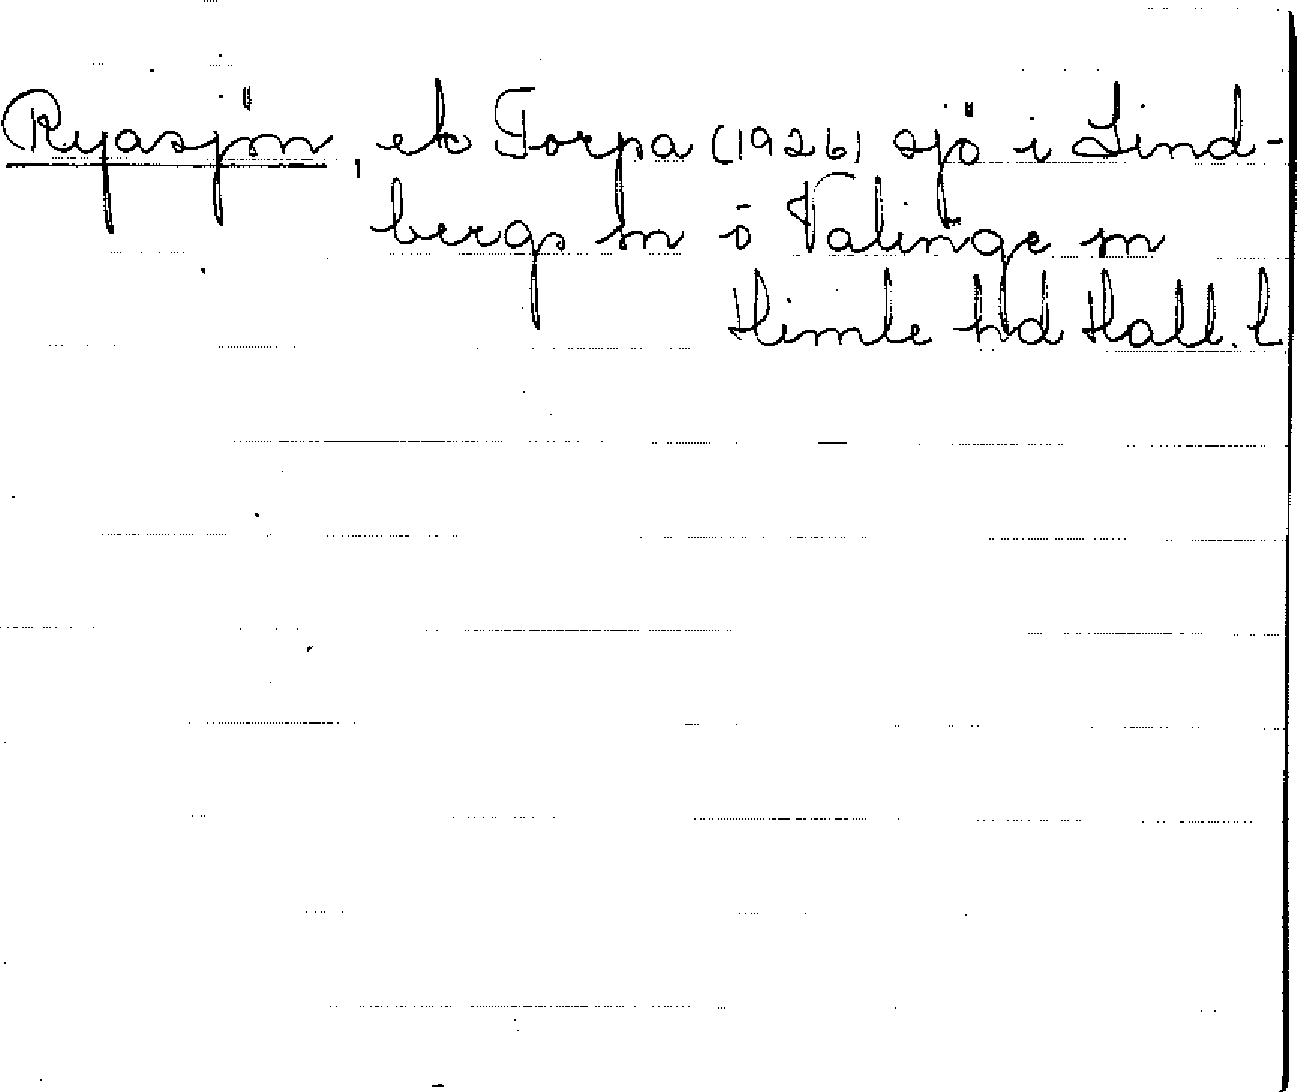 Ryasjön, ek Torpa (1926) sjö i Lind-
bergs sn ö Valinge sn
Himle hd Hall. l